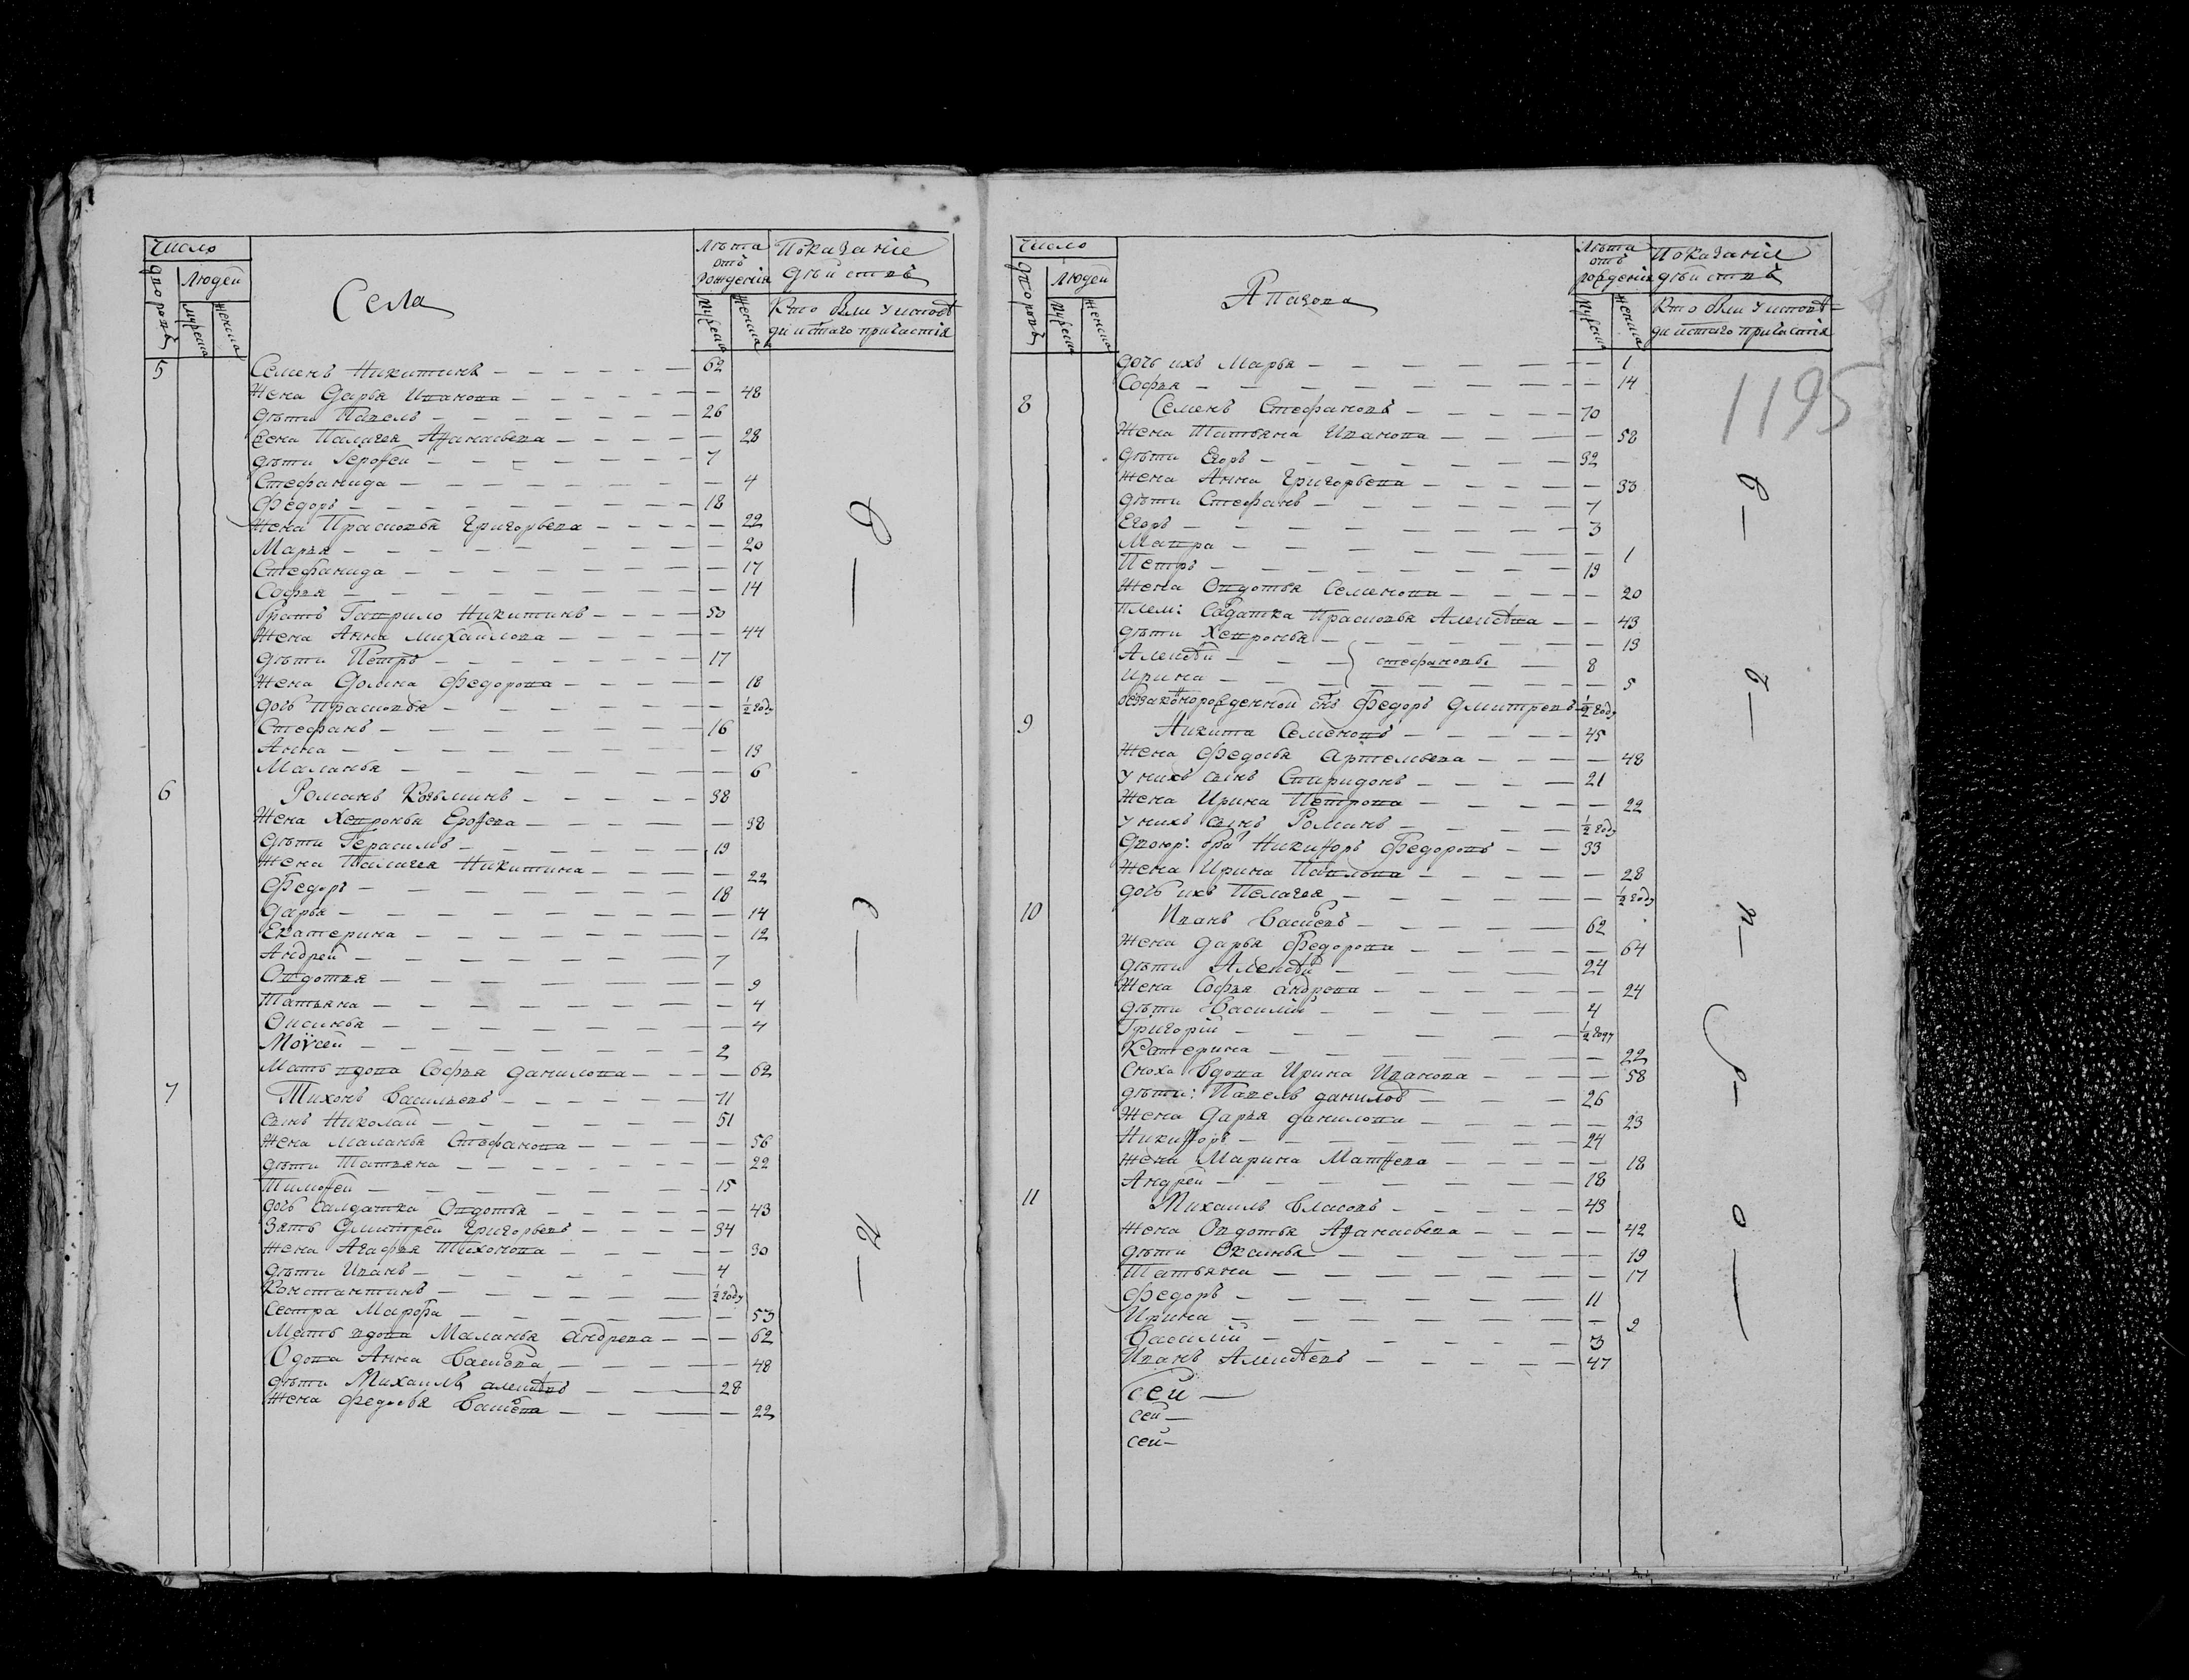 Число
Дворовъ
Людей
Мужеска
Женска
Села
Лѣта отъ рожденія
Мужеска
Женска
Показаніе дѣйствъ
Кто были у исповѣди и с̃таго причастія
5 Семенъ Никитинъ 62
Жена Дарья Иванова 48
Дѣти Павелъ 26
Жена Палагея Аѳанасьева 28
Дѣти Іероѳей 7
Стефанида 4
Федоръ 18
Жена Прасковья Григорьева 22
Марья 20
Стефанида 17
Софья 14
Братъ Гаврило Никитинъ 50
Жена Анна Михайлова 44
Дѣти Петръ 17
Жена Домна Федорова 18
Дочь Прасковья ½ году
Стефанъ 16
Анна 13
Маланья 6
6 Романъ Козьминъ 38
Жена Хевронья Ероѳева 38
Дѣти Герасимъ 19
Жена Палагея Никитина 22
Федоръ 18
Дарья 14
Екатерина 12
Андрей 7
Овдотья 9
Татьяна 4
Оксинья 4
Моѵсей 2
Мать вдова Софья Данилова 62
7 Тихонъ Васильевъ 71
Сынъ Николай 51
Жена Маланья Стефанова 56
Дѣти Татьяна 22
Тимоѳей 15
Дочь Салдатка Овдотья 43
Зять Дмитрей Григорьевъ 34
Жена Агафья Тихонова 30
Дѣти Иванъ 4
Константинъ ½ году
Сестра Марфа 53
Мать вдова Маланья Андрева 62
Вдова Анна Васильева 48
Дѣти Михаилъ Алексѣевъ 28
Жена Федосья Васильева 22
Число
Дворовъ
Людей
Мужеска
Женска
Апазова
Лѣта отъ рожденія
Мужеска
Женска
Показаніе дѣйствъ
Кто были у исповѣди и с̃таго причастія
1195
Дочь ихъ Марья 1
Софья 14
8 Семенъ Стефановъ 70
Жена Татьяна Иванова 58
Дѣти Егоръ 32
Жена Анна Григорьева 33
Дѣти Стефанъ 7
Егоръ 3
Мавра 1
Петръ 19
Жена Овдотья Семенова 20
Плем: Садатка Прасковья Алексѣева 43
Дѣти Хевронья 13
Алексѣй } Стефановы 8
Ирина 5
Беззаконорожденной сн̃ъ Федоръ Дмитревъ ½ году
9 Никита Семеновъ 45
Жена Федосья Артемьева 48
У нихъ сынъ Спиридонъ 21
Жена Ирина Петрова 22
У нихъ сынъ Романъ ½ году
Двоюр: бра Никиѳоръ Федоровъ 33
Жена Ирина Павлова 28
Дочь ихъ Пелагея ½ году
10 Иванъ Васильевъ 62
Жена Дарья Федорова 64
Дѣти Алексѣй 24
Жена Софья Андрева 24
Дѣти Василій 4
Григорій ½ году
Катерина 22
Сноха Вдова Ирина Иванова 58
Дѣти: Павелъ Даниловъ 26
Жена Дарья Данилова 23
Никиѳоръ 24
Жена Марина Матѳева 18
Андрей 18
11 Михаилъ Власовъ 43
Жена Овдотья Аѳанасьева 42
Дѣти Оксинья 19
Татьяна 17
Федоръ 11
Ирина 9
Василій 3
Иванъ Алексѣевъ 47
сей
сей
сей